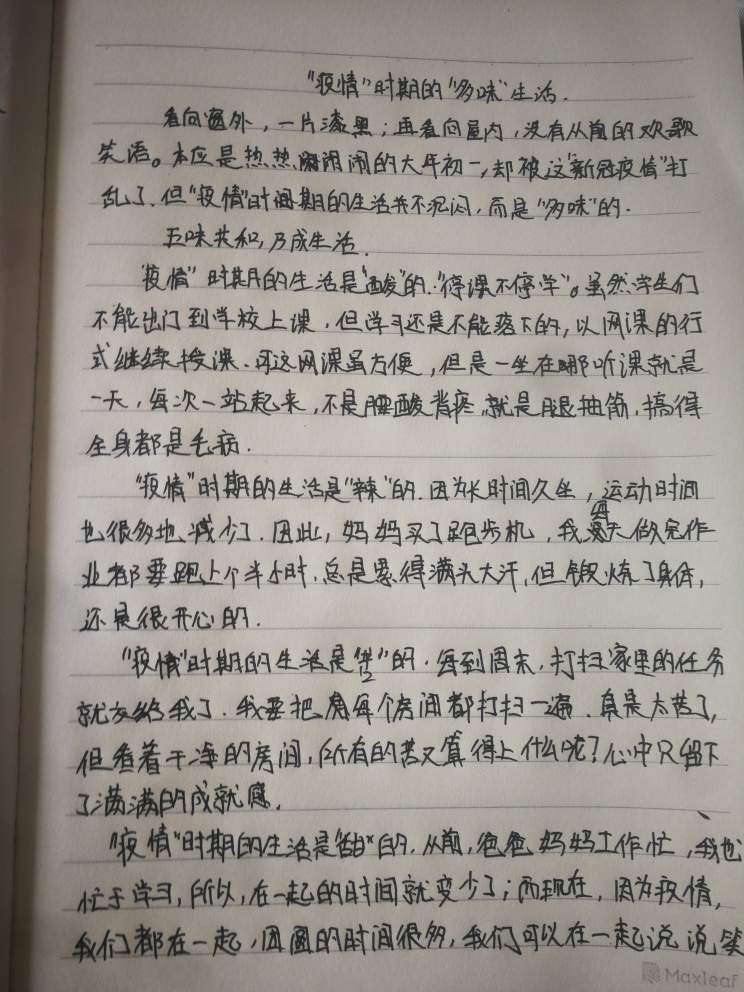 “疫情”时期的“多味”生活.
看向窗外，一片漆黑；再看向屋内，没有从前的欢歌
笑语。本应是热热闹闹的大年初一，却被这“新冠疫情”打
乱了.但“疫情”时期的生活并不沉闷，而是“多味”的.
五味共和，乃成生活.
“疫情”时期的生活是“酸”的.“停课不停学”。虽然学生们
不能出门到学校上课，但学习还是不能落下的，以网课的行
式继续授课.可这网课虽方便，但是一坐在那听课就是
一天，每次一站起来，不是腰酸背疼，就是腿抽筋，搞得
全身都是毛病.
“疫情”时期的生活是“辣”的.因为长时间久坐，运动时间
也很多地减少了.因此，妈妈买了跑步机，我每天做完作
业都要跑上个半小时.总是累得满头大汗，但锻炼了身体，
还是很开心的.
“疫情”时期的生活是“苦”的.每到周末，打扫家里的任务
就交给我了.我要把每个房间都打扫一遍.真是太苦了，
但看着干净的房间，所有的苦又算得上什么呢？心中只留下
了满满的成就感.
“疫情”时期的生活是“甜”的.从前，爸爸妈妈工作忙，我也
忙于学习，所以，在一起的时间就变少了；而现在，因为疫情，
我们都在一起，团圆的时间很多，我们可以在一起说说笑
Maxleaf